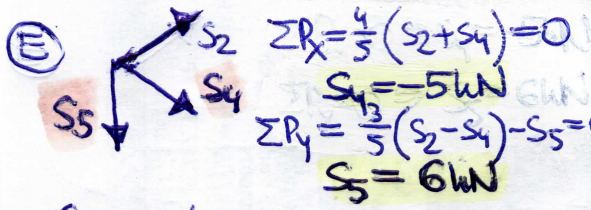 E
S2
S4
S5
ΣPx=4/5(S2+S4)=0
S4=-5kN
ΣPy=3/5(S2-S4)-S5=
S5=6kN